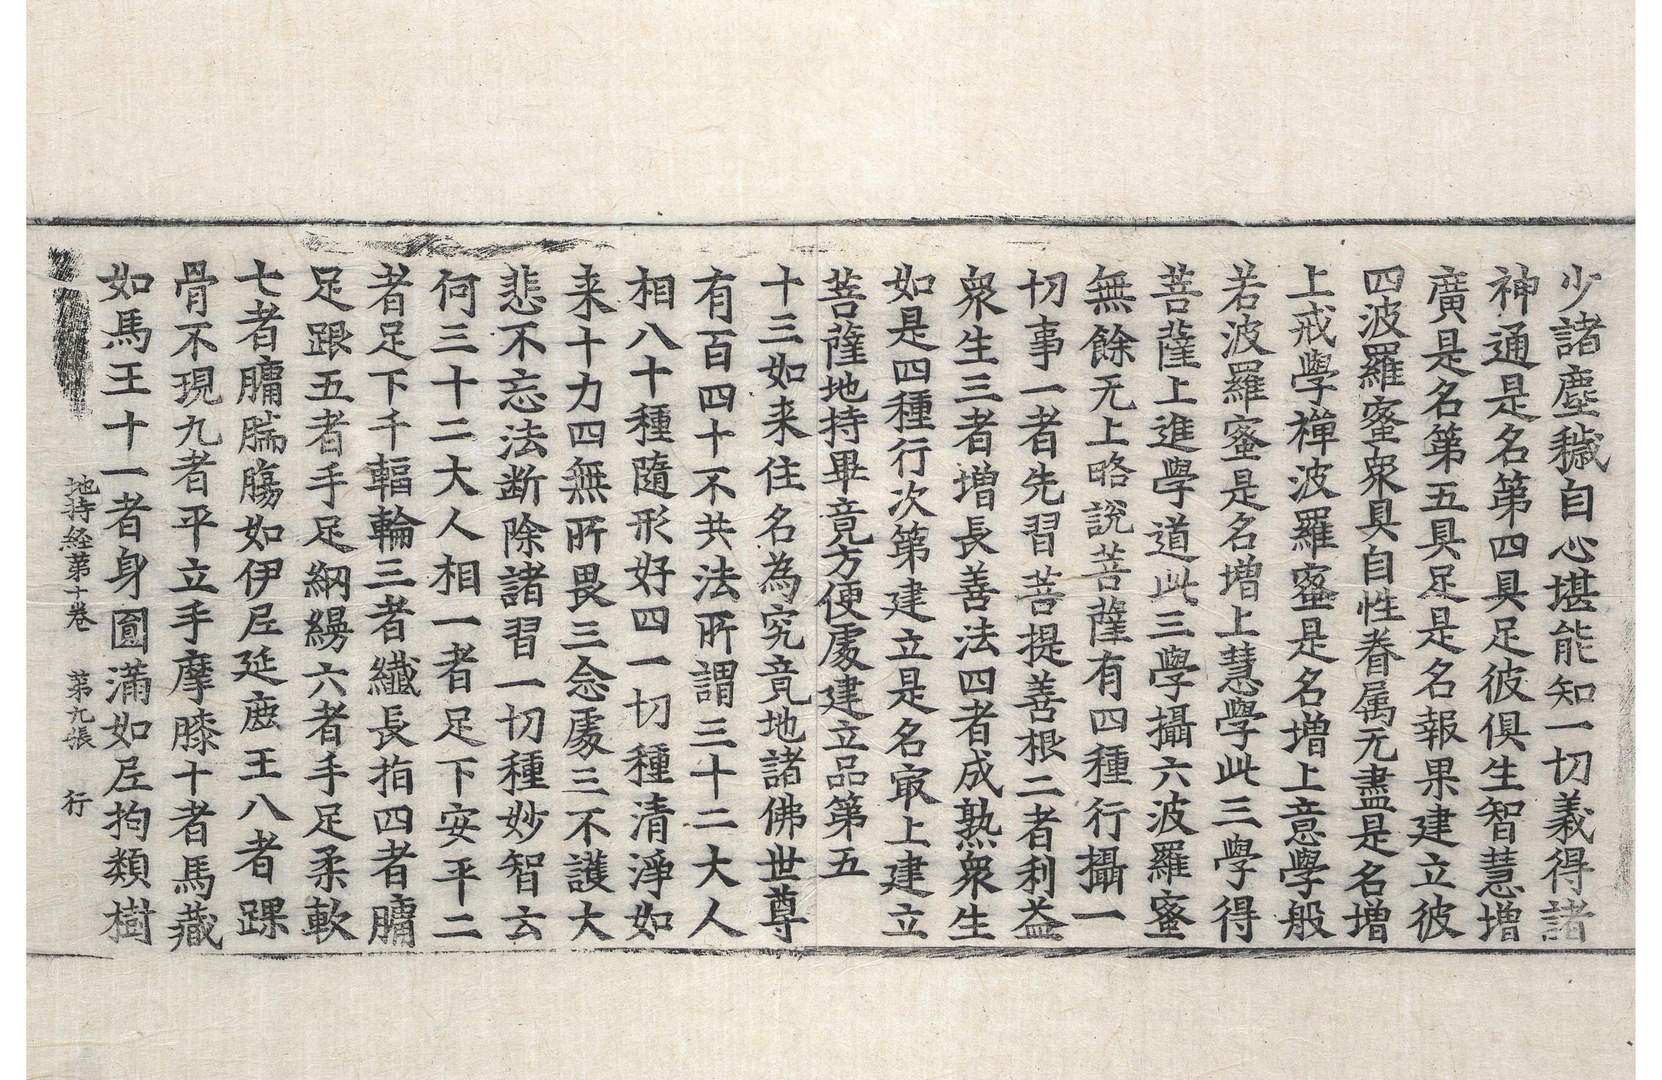 少諸塵穢自心堪能知一切義得諸
神通是名第四具足彼俱生智慧增
廣是名第五具足是名報果建立彼
四波羅蜜衆具自性眷属无盡是名增
上戒學禪波羅蜜是名增上意學般
若波羅蜜是名增上慧學此三學得
菩薩上進學道此三學攝六波羅蜜
無餘无上略說菩薩有四種行攝一
切事一者先習菩提善根二者利益
衆生三者增長善法四者成熟衆生
如是四種行次第建立是名㝡上建立
菩薩地持畢竟方便處建立品第五
十三如来住名為究竟地諸佛世尊
有百四十不共法所謂三十二大人
相八十種隨形好四一切種清淨如
来十力四無所畏三念處三不護大
悲不忘法断除諸習一切種妙智云
何三十二大人相一者足下安平二
者足下千輻輪三者纖長指四者𦟛
足跟五者手足網縵六者手足柔軟
七者𦟛腨膓如伊尼延鹿王八者踝
骨不現九者平立手摩膝十者馬藏
如馬王十一者身圎滿如尼拘類樹
地持経第十卷 第九張 行